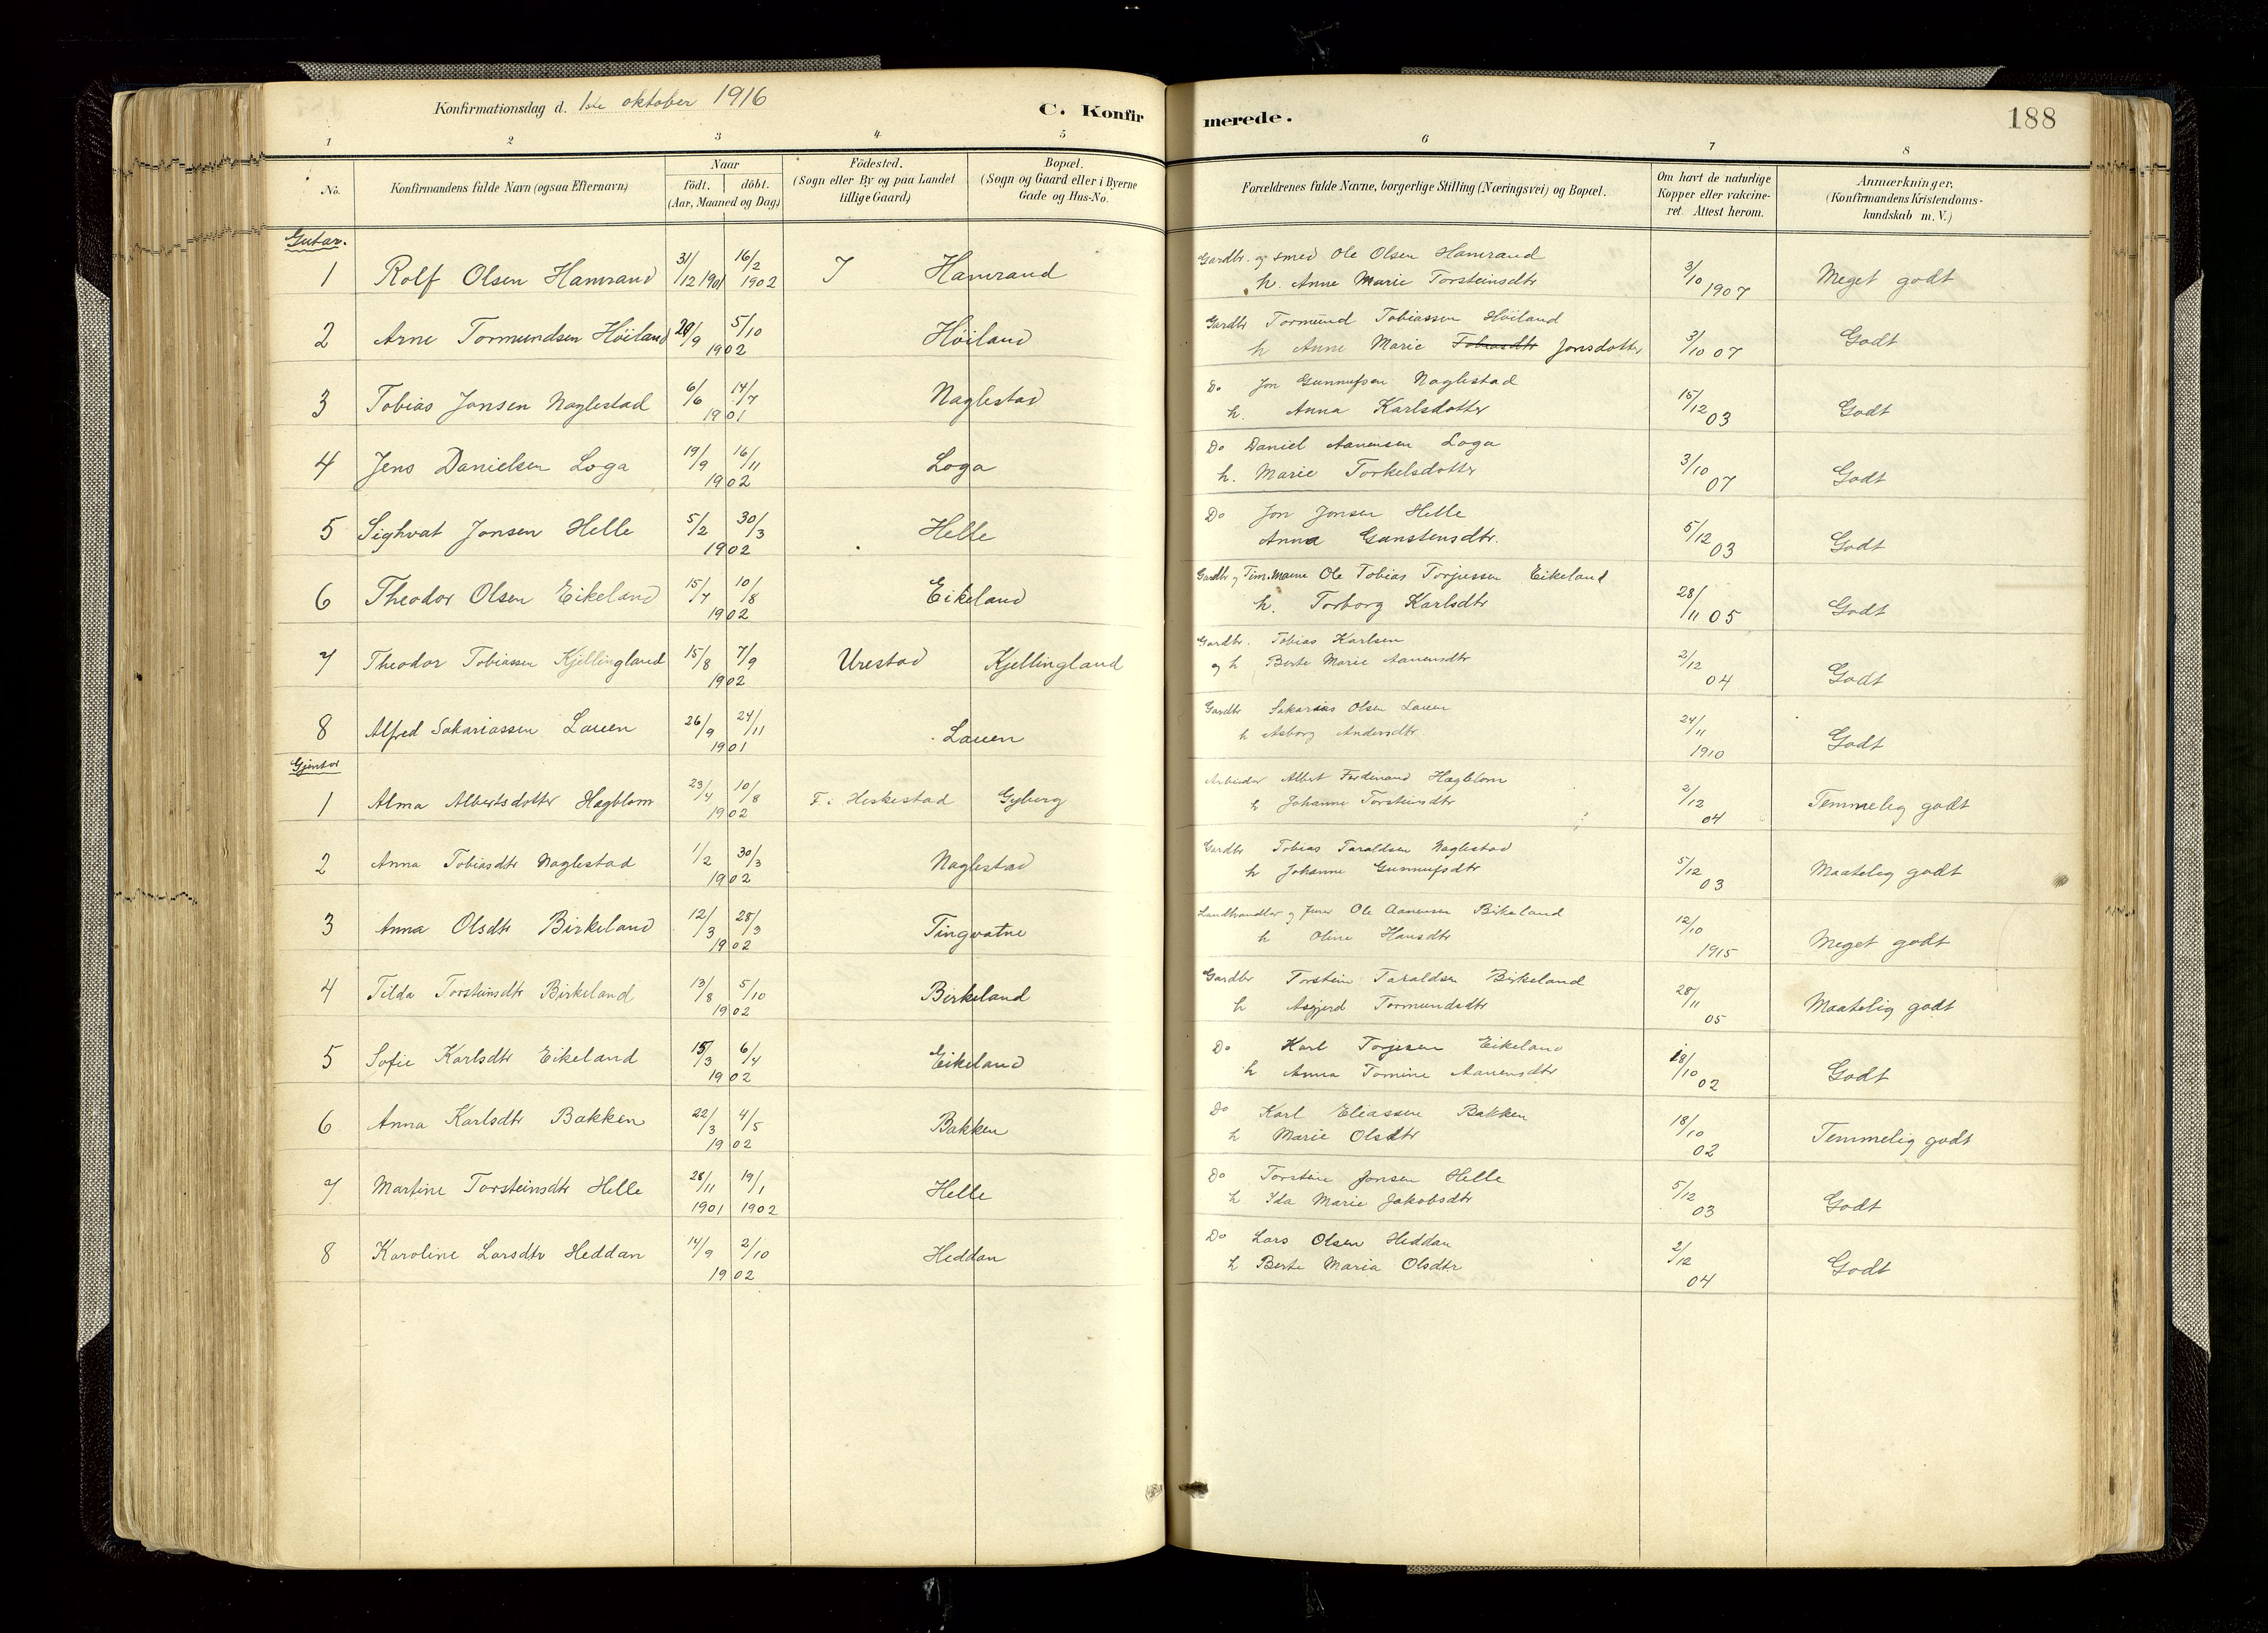 Konfirmationsdag d. 1ste oktober 1916
C. Konfirmerede.
188
1 2 3 4 5 6 7 8
No.
Konfirmandens fulde Navn (ogsaa Efternavn)
Naar
födt. döbt.
(Aar, Maaned og Dag)
Födested.
(Sogn eller By og paa Landet
tillige Gaard)
Bopæl.
(Sogn og Gaard eller i Byerne
Gade og Hus-No.
Forældrenes fulde Navne, borgerlige Stilling (Næringsvei) og Bopæl.
Om havt de naturlige
Kopper eller vakcine-
ret. Attest herom.
Anmærkninger.
(Konfirmandens Kristendoms-
kundskab m. V.)
Gutar.
1 Rolf Olsen Hamrand 31/12 1901 16/2 1902 I Hamrand Gardbr. og smed Ole Olsen Hamrand
h. Anne Marie Torsteinsdtr 3/10 1907 Meget godt
2 Arne Tormundsen Höiland 29/9 5/10 1902 Höiland Gardbr Tormund Tobiassen Höiland
h Anne Marie Tobiasdtr Jonsdotter 3/10 07 Godt
3 Tobias Jonsen Naglestad 6/6 14/7 1901 Naglestad Do Jon Gunnufsen Naglestad
h. Anna Karlsdotter 15/12 03 Godt
4 Jens Danielsen Loga 19/9 16/11 1902 Loga Do Daniel Aanensen Loga
h. Marie Torkelsdotter 3/10 07 Godt
5 Sighvat Jonsen Helle 5/2 30/3 1902 Helle Do Jon Jonsen Helle
Anna Gunstensdtr. 5/12 03 Godt
6 Theodor Olsen Eikeland 15/7 10/8 1902 Eikeland Gardbr og Tim.mann Ole Tobias Torjussen Eikeland
h. Torborg Karlsdtr 28/11 05 Godt
7 Theodor Tobiassen Kjellingland 15/8 7/9 1902 Urestad Kjellingland Gardbr. Tobias Karlsen
og h Berte Marie Aanensdtr 2/12 04 Godt
8 Alfred Sakariassen Lauen 26/9 24/11 1901 Lauen Gardbr Sakarias Olsen Lauen
h Asborg Andersdtr 24/11 1910 Godt
Gjentor
1 Alma Albertsdotter Hagblom 23/4 10/8 1902 F. i Heskestad Gyberg Arbeider Albert Ferdinand Hagblom
h Johanne Torsteinsdtr 2/12 04 Temmelig godt
2 Anna Tobiasdtr Naglestad 1/2 30/3 1902 Naglestad Gardbr Tobias Taraldsen Naglestad
h Johanne Gunnufsdtr 5/12 03 Maatelig godt
3 Anna Olsdtr Birkeland 12/3 28/3 1902 Tingvatne Landhandler og Ole Aanensen Birkeland
h Oline Hansdtr 12/10 1915 Meget godt
4 Tilda Torsteinsdtr Birkeland 13/8 5/10 1902 Birkeland Gardbr Torstein Taraldsen Birkeland
h Asgjerd Tormundsdtr 28/11 05 Maatelig godt
5 Sofie Karlsdtr Eikeland 15/3 6/4 1902 Eikeland Do Karl Torjesen Eikeland
h Anna Tomine Aanensdtr 18/10 02 Godt
6 Anna Karlsdtr Bakken 22/3 4/5 1902 Bakken Do Karl Eliassen Bakken
h Marie Olsdtr 18/10 02 Temmelig godt
7 Martine Torsteinsdtr Helle 28/11 1901 19/1 1902 Helle Do Torstein Jonsen Helle
h Ida Marie Jakobsdtr 5/12 03 Godt
8 Karoline Larsdtr Heddan 14/9 2/10 1902 Heddan Do Lars Olsen Heddan
h Berte Maria Olsdtr 2/12 04 Godt